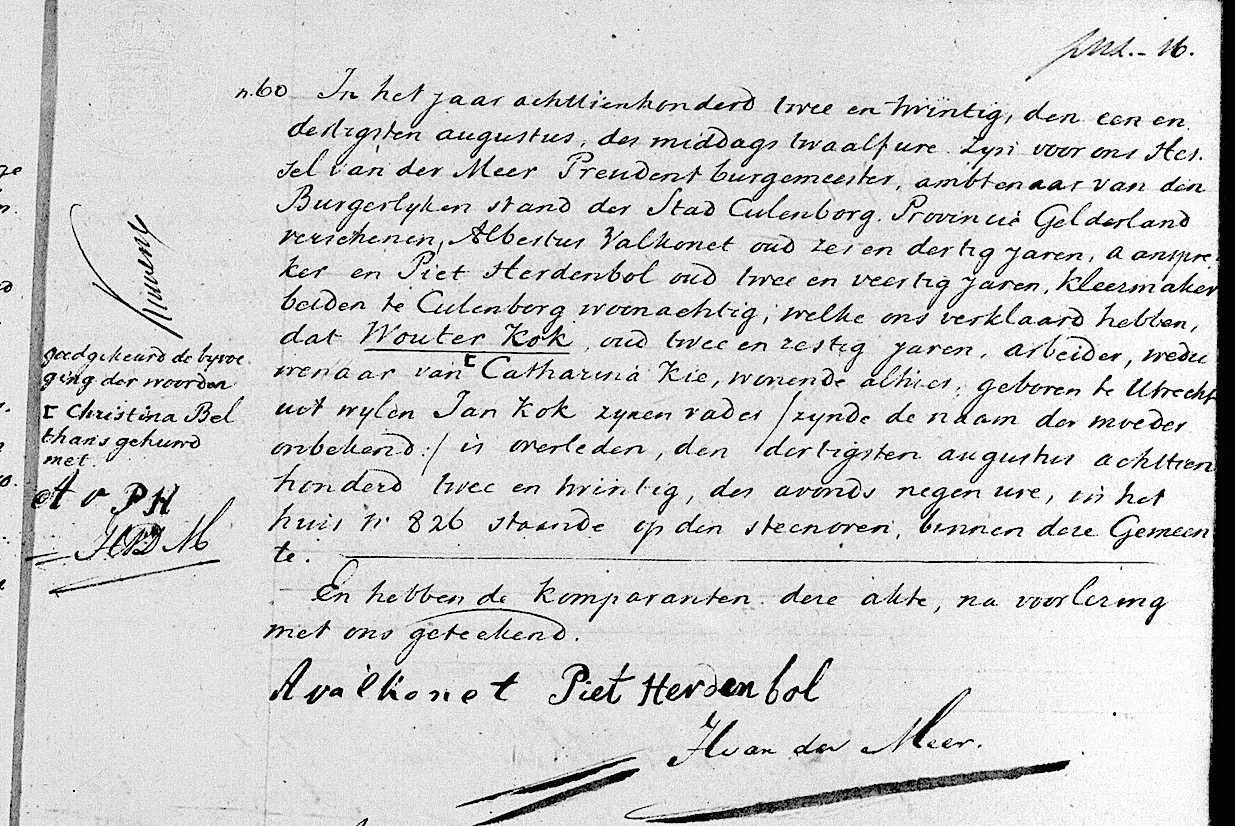 n. 60 In het jaar achttienhonderd twee en twintig, den een en
dertigsten augustus, des middags twaalf ure zyn voor ons Hes-
sel van der Meer President burgemeester, ambtenaar van den
Burgerlyken stand der Stad Culenborg Provincie Gelderland
verschenen, Albertus Valkonet oud zes en dertig jaren, aanspre-
ker en Piet Herdenbol oud twee en veertig jaren, kleermaker
beiden te Culenborg woonachtig, welke ons verklaard hebben,
dat Wouter Kok, oud twee en zestig jaren, arbeider, wedu
wenaar van [ Catharina Kie, wonende alhier, geboren te Utrecht
uit wylen Jan Kok zynen vader /zynde de naam der moeder
onbekend:/ is overleden, den dertigsten augustus achttien
honderd twee en twintig, des avonds negen ure, in het
huis N 826 staande op den steenoven, binnen deze Gemeen
te.
En hebben de komparanten deze akte, na voorlezing
met ons geteekend.
A valkonet Piet Herdenbol
H van der Meer.
goedgekeurd de byvoe
ging der woorden
[ Christina Bel
thans gehuwd
met.
A v PH
HVD M